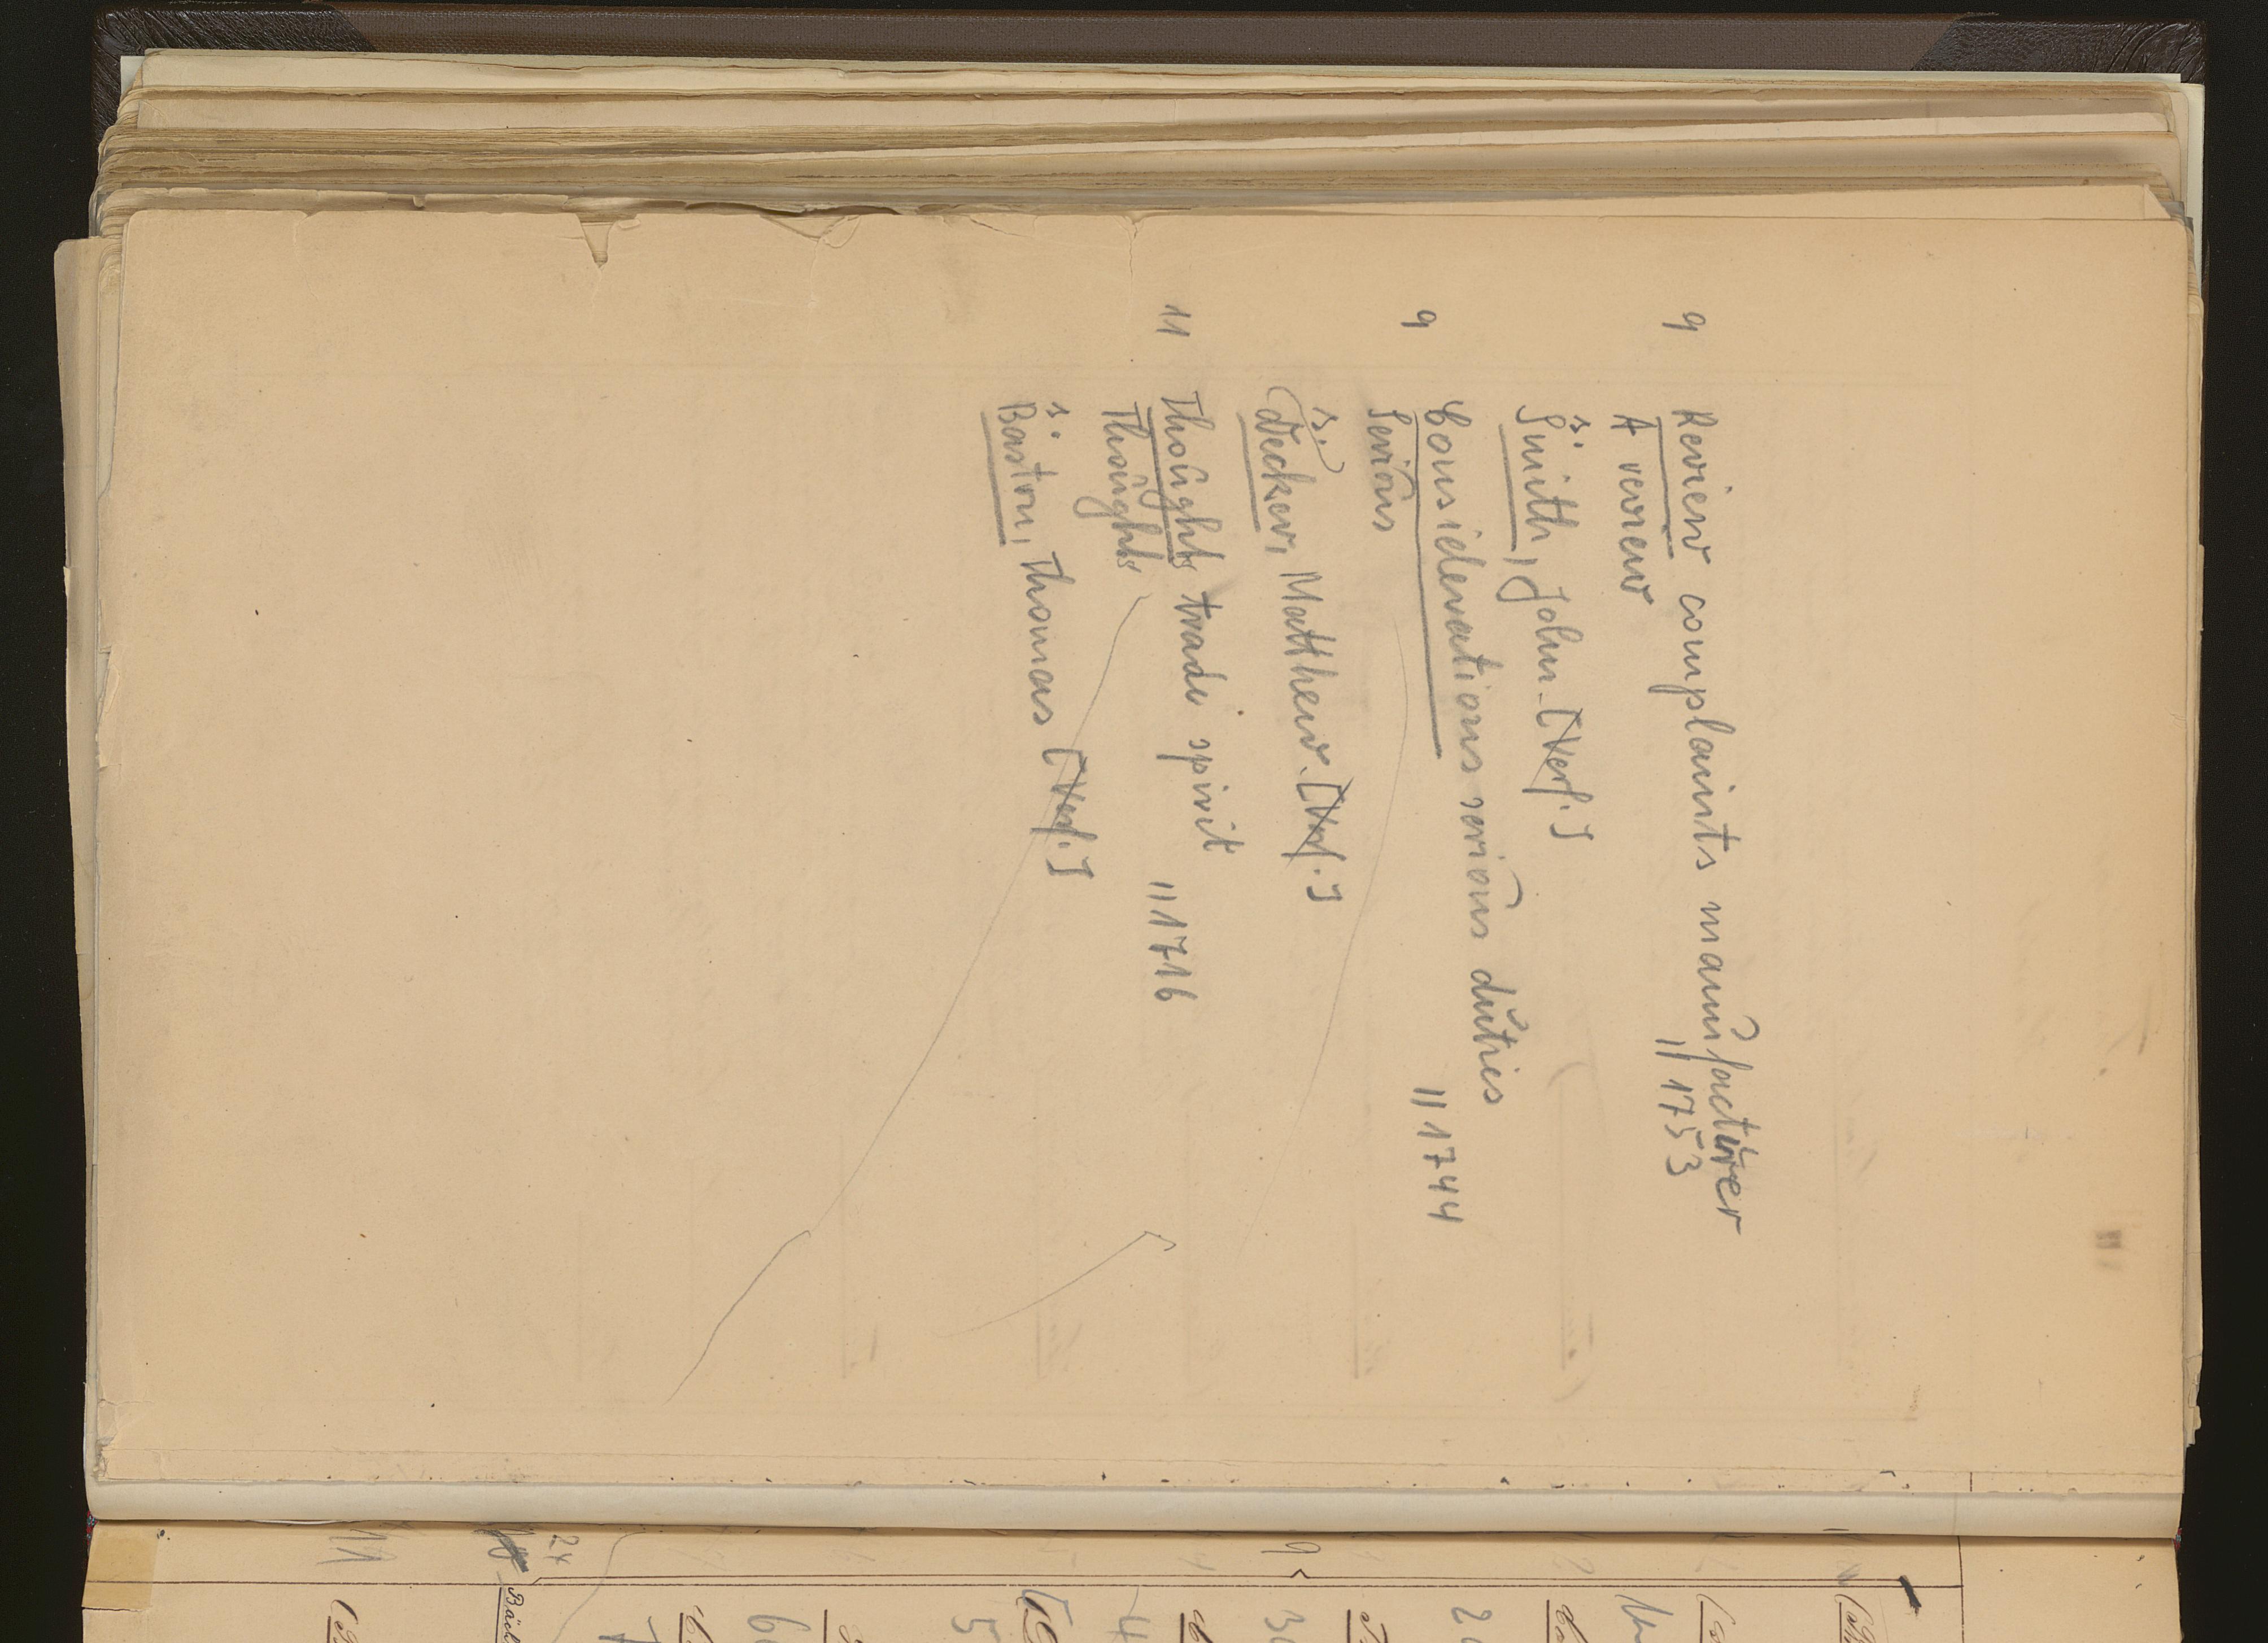 9 Review complaints manufacturer
// 1753
A review
s.
Smith, John. [Verf.]
9 Considerations serious duties
// 1744
Serious
s.
Decker, Matthew. [Verf.]
11 Thoughts trade spirit
// 1716
Thoughts
s.
Baston, Thomas [Verf.]
11
24
Bäck
9
7
6
5
4
3
2